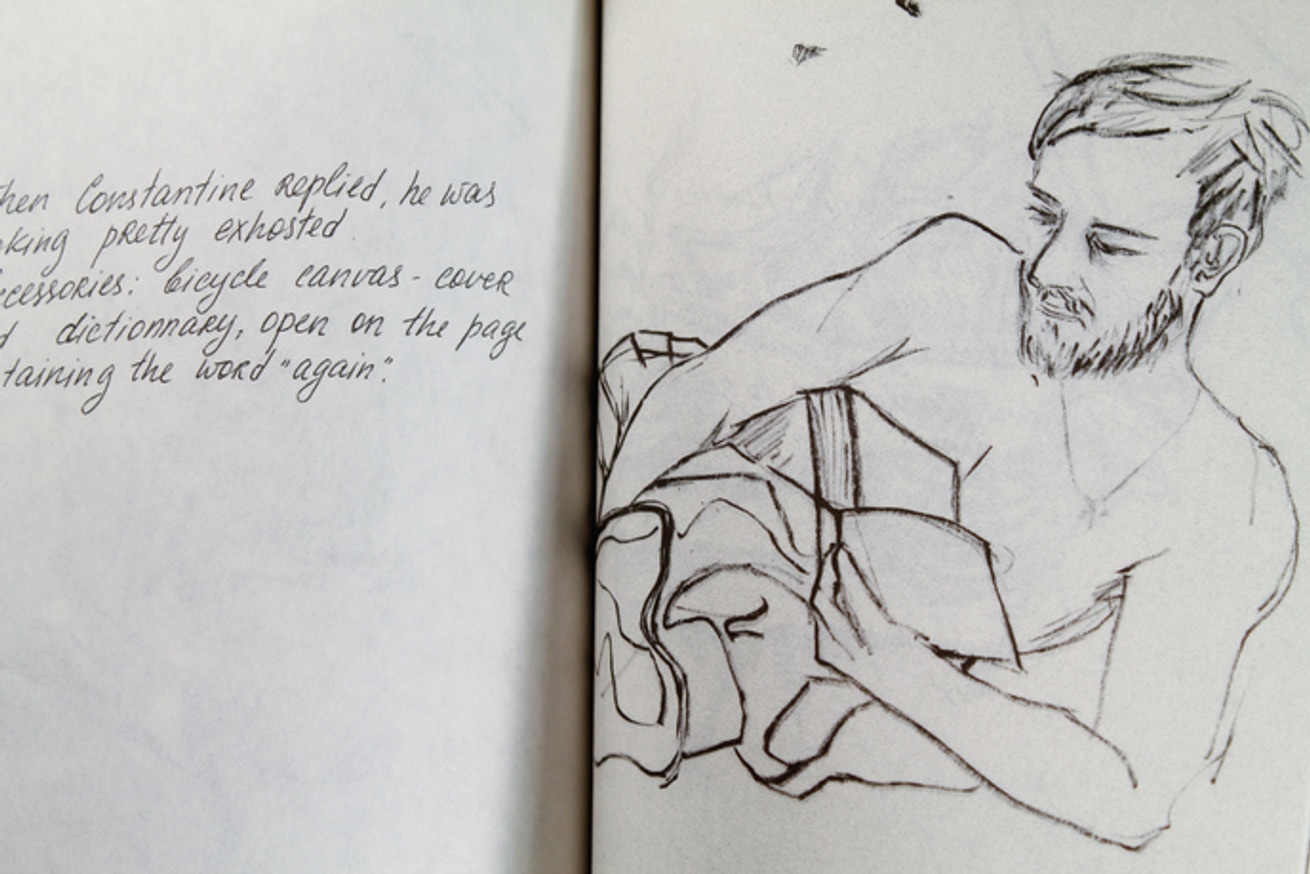 hen Constantine replied, he was
oking pretty exhosted
ccessories: bicycle canvas-cover
d dictionnary, open on the page
taining the word "again".